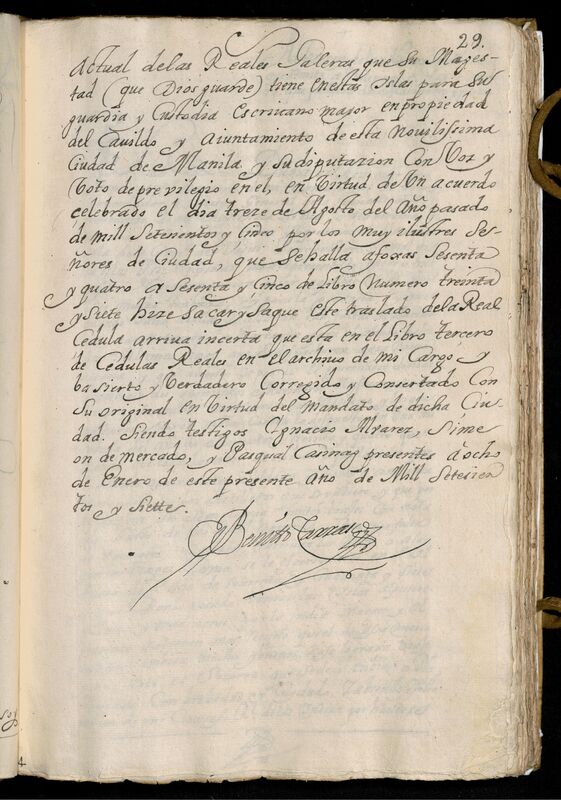 29.
Actual delas Reales Galeras que su Mages-
tad (que Dios guarde) tiene enestas Islas para su
guardia y Custodia Escrivano maior en propiedad
del Cavildo y Aiuntamiento de esta Novilissima
Ciudad de Manila y su diputazion Con Voz y
Voto de previlegio en el, en Virtud de Un acuerdo
celebrado el dia treze de Agosto del Año pasado
de mill Setesientos y Cinco por los muy ilustres Se-
ñores de Ciudad, que se halla afoxas Sesenta
y quatro a Sesenta y Cinco de Libro Numero treinta
y Siete hize sacar y saque este traslado dela Real
Cedula arriva incerta que esta en el Libro tercero
de Cedulas Reales en el archivo de mi Cargo y
ba sierto y Verdadero Corregido y Consertado Con
Su original en Virtud del mandato de dicha Ciu-
dad. Siendo testigos Ygnacio Alvarez, Sime
on de mercado, y Pasqual Casinag presentes a ocho
de Enero de este presente Año de Mill Setesien
tos y Siette.
Benito